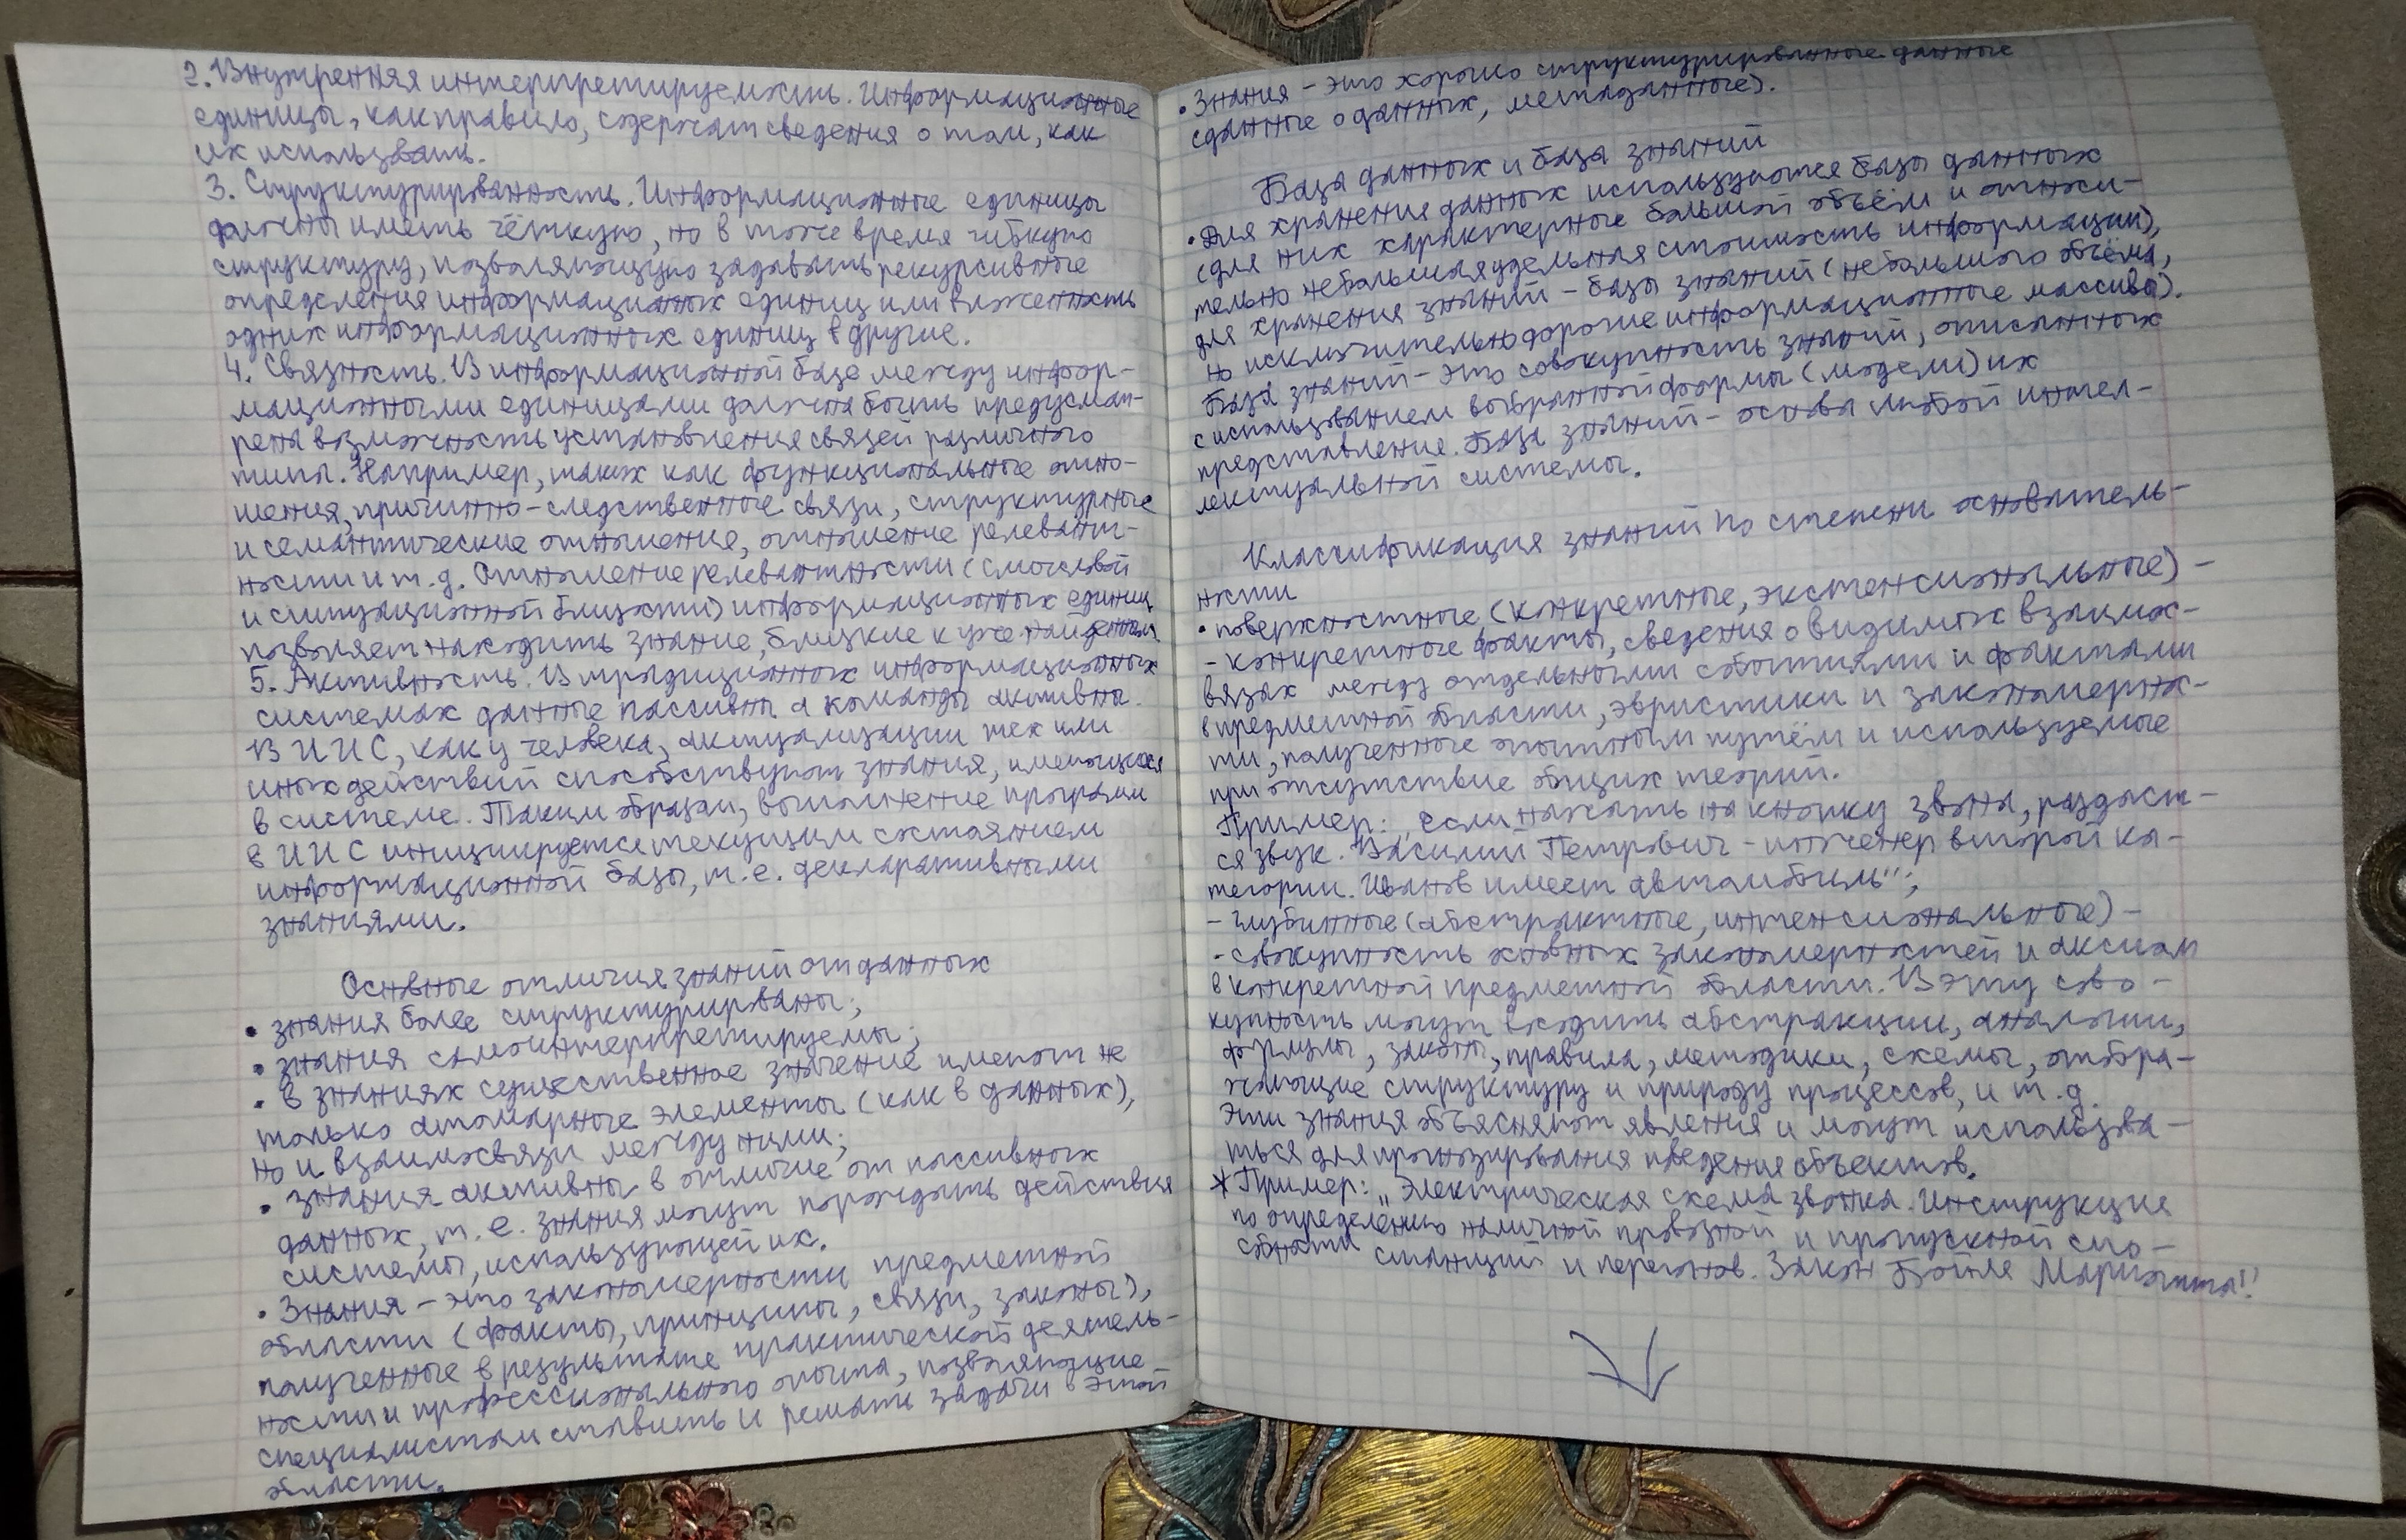 2. Внутренняя интерпретируемость. Информационные
единицы, как правило, содержат сведения о том, как
их использовать.
3. Структурированность. Информационные единицы
должны иметь чёткую, но в тоже время гибкую
структуру, позволяющую задавать рекурсивные
определения информационных единиц или вложенность
одних информационных единиц в другие.
4. Связность. В информационной базе между инфор-
мационными единицами должна быть предусмот-
рена возможность установления связей различного
типа. Например, таких как функциональные отно-
шения, причинно-следственные связи, структурные
и семантические отношения, отношение релевант-
ности и т.д. Отношение релевантности (смысловой
и ситуационной близкости) информационных единиц
позволяет находить знание, близкие к уже найденным.
5. Активность. В традиционных информационных
системах данные пассивны а команды активны.
В ИИС, как у человека, актуализации тех или
иных действий способствуют знания, имеющиеся
в системе. Таким образом, выполнение программ
в ИИС инициируется текущим состоянием
информационной базы, т.е. декларативными
знаниями.
Основные отличия знаний от данных
• знания более структурированы;
• знания самоинтерпретируемы;
• в знаниях существенное значение имеют не
только атомарные элементы (как в данных),
но и взаимосвязи между ними;
• знания активны в отличие от пассивных
данных, т.е. знания могут порождать действия
системы, использующей их.
• Знания – это закономерности предметной
области (факты, принципы, связи, законы),
полученные в результате практической деятель-
ности и профессионального опыта, позволяющие
специалистам ставить и решать задачи в этой
области.
• Знания – это хорошо структурированные данные
(данные о данных, метаданные).
База данных и база знаний
• Для хранения данных используются базы данных
(для них характерные большой объём и относи-
тельно небольшая удельная стоимость информации),
для хранения знаний – базы знаний (небольшого объёма,
но исключительно дорогие информационные массивы).
База знаний – это совокупность знаний, описанных
с использованием выбранной формы (модели) их
представление. База знаний – основа любой интел-
лектуальной системы.
Классификация знаний по степени основатель-
ности
• поверхностные (конкретные, экстенсиональные) –
- конкретные факты, сведения о видимых взаимос-
вязах между отдельными событиями и фактами
в предметной области, эвристики и закономернос-
ти, полученные опытным путём и используемые
при отсутствие общих теорий.
Пример: „Если нажать на кнопку звона, раздаст-
ся звук. Василий Петрович – инженер второй ка-
тегории. Иванов имеет автомобиль";
- глубинные (абстрактные, интенсиональные) –
- совокупность основных закономерностей и аксиом
в конкретной предметной области. В эту сово-
купность могут входить абстракции, аналогии,
формулы, законы, правила, методики, схемы, отобра-
жающие структуру и природу процессов, и т.д.
Эти знания объясняют явления и могут использова-
ться для прогнозирования поведения объектов.
* Пример: „Электрическая схема звонка. Инструкция
по определению наличной провозной и пропускной спо-
собности станций и перегонов. Закон Бойля Мариотта".